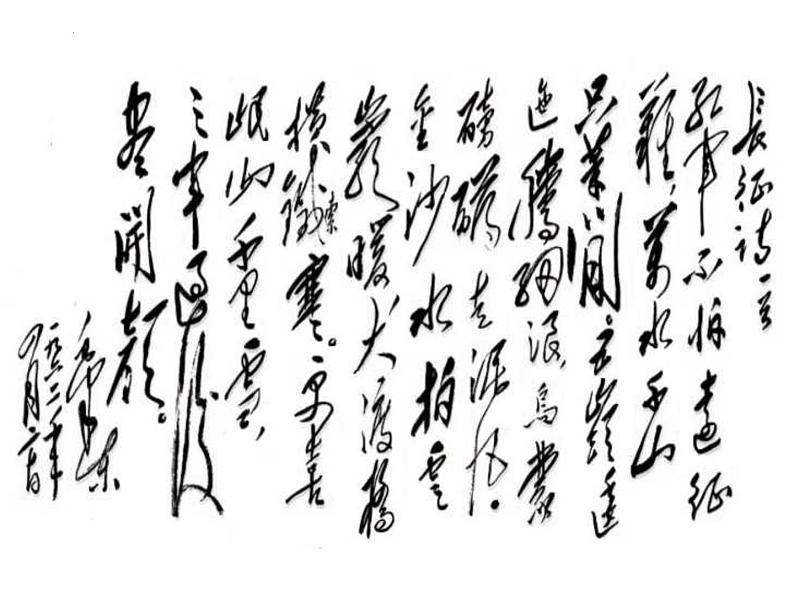 長征詩一首
紅軍不怕遠征
難,萬水千山
只等閒。五嶺逶
迤騰細浪,烏蒙
磅礴走泥丸。
金沙水拍雲
崖暖大渡橋
橫鐵索寒。更喜
岷山千里雪,
三軍過後
盡開顏。
毛澤東
一九六二年
四月二十日